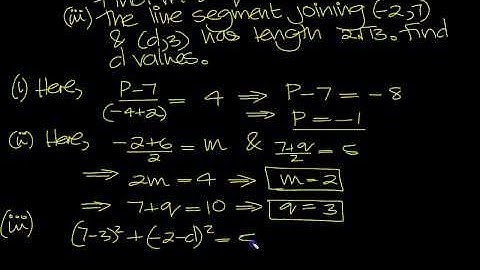 (iii) The line segment joining (-2,7)
& (d,3) has length 2√13. Find
d values.
(i) Here, P-7/(-4+2) = 4 ⇒ P-7 = -8
⇒ P = -1
(ii) Here, -2+6/2 = m & 7+q/2 = 5
⇒ 2m = 4 ⇒ m = 2
⇒ 7+q = 10 ⇒ q = 3
(iii) (7-3)² + (-2-d)² =